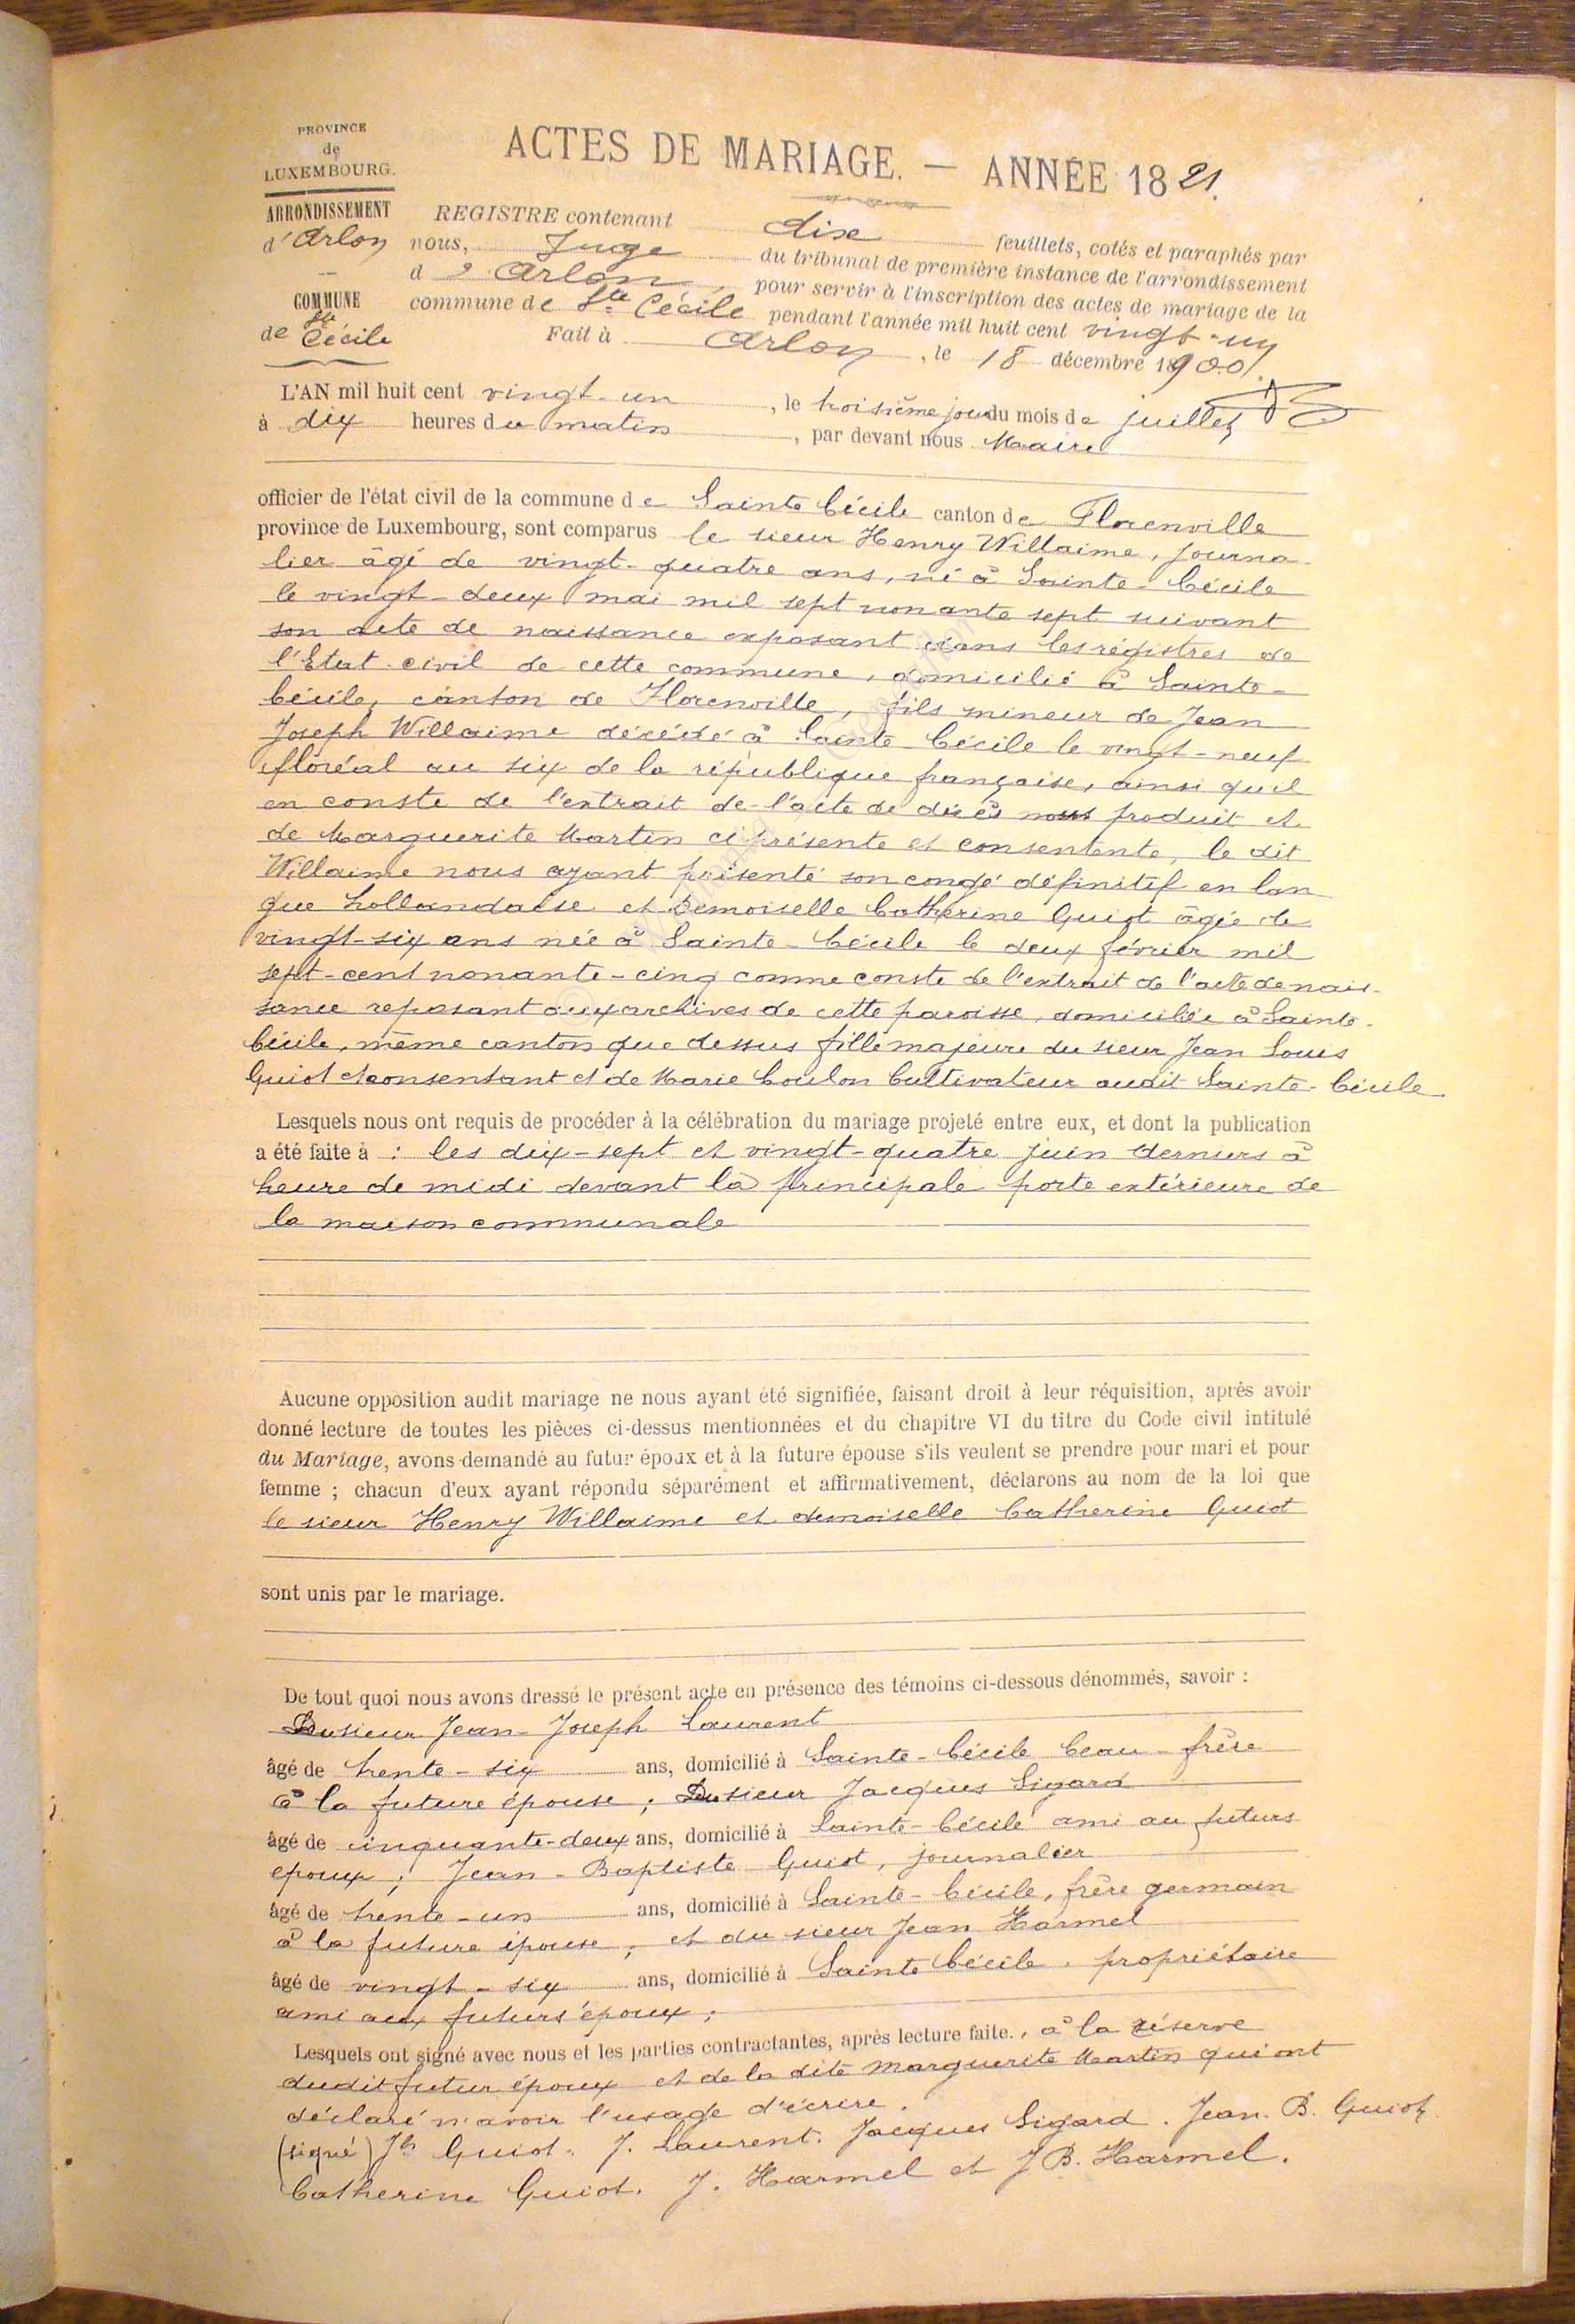 PROVINCE
de
LUXEMBOURG.
ARRONDISSEMENT
d'Arlon
COMMUNE
de Ste Cécile
ACTES DE MARIAGE. — ANNÉE 1821.
REGISTRE contenant dix feuillets, cotés et paraphés par
nous, Juge du tribunal de première instance de l'arrondissement
d'Arlon, pour servir à l'inscription des actes de mariage de la
commune de Ste Cécile pendant l'année mil huit cent vingt-un
Fait à Arlon, le 18 décembre 1900.
L'AN mil huit cent vingt-un, le troisième jour du mois de juillet
à dix heures du matin, par devant nous Maire
officier de l'état civil de la commune de Sainte Cécile canton de Florenville
province de Luxembourg, sont comparus le sieur Henry Willaime, journa-
lier âgé de vingt-quatre ans, né à Sainte-Cécile
le vingt-deux mai mil sept nonante sept suivant
son acte de naissance exposant dans les régistres de
l'Etat-civil de cette commune, domicilié à Sainte-
Cécile, canton de Florenville, fils mineur de Jean
Joseph Willaime décédé à Sainte-Cécile le vingt-neuf
floréal au six de la république française, ainsi qu'il
en conste de l'extrait de l'acte de décès nous produit et
de Marguerite Martin ci présente et consentente, le dit
Willaime nous ayant présenté son congé définitif en lan
gue hollandaise et Demoiselle Catherine Guiot âgée de
vingt-six ans née à Sainte-Cécile le deux février mil
sept-cent nonante-cinq comme conste de l'extrait de l'acte de nais-
sance reposant aux archives de cette paroisse, domiciliée à Sainte-
Cécile, même canton que dessus fille majeure du sieur Jean Louis
Guiot et consentant et de Marie Coulon Cultivateur audit Sainte-Cécile.
Lesquels nous ont requis de procéder à la célébration du mariage projeté entre eux, et dont la publication
a été faite à : les dix-sept et vingt-quatre juin derniers à
heure de midi devant la principale porte extérieure de
la maison communale
Aucune opposition audit mariage ne nous ayant été signifiée, faisant droit à leur réquisition, après avoir
donné lecture de toutes les pièces ci-dessus mentionnées et du chapitre VI du titre du Code civil intitulé
du Mariage, avons demandé au futur époux et à la future épouse s'ils veulent se prendre pour mari et pour
femme ; chacun d'eux ayant répondu séparément et affirmativement, déclarons au nom de la loi que
le sieur Henry Willaime et demoiselle Catherine Guiot
sont unis par le mariage.
De tout quoi nous avons dressé le présent acte en présence des témoins ci-dessous dénommés, savoir :
Du sieur Jean-Joseph Laurent
âgé de trente-six ans, domicilié à Sainte-Cécile beau-frère
à la future épouse ; Du sieur Jacques Sigard
âgé de cinquante-deux ans, domicilié à Sainte-Cécile ami au futurs
epoux ; Jean-Baptiste Guiot, journalier
âgé de trente-un ans, domicilié à Sainte-Cécile, frère germain
à la future épouse ; et du sieur Jean Harmel
âgé de vingt-six ans, domicilié à Sainte Cécile, propriétaire
ami aux futurs époux ;
Lesquels ont signé avec nous et les parties contractantes, après lecture faite., à la réserve
dudit futur époux et de la dite Marguerite Martin qui ont
déclaré n'avoir l'usage d'écrire.
(signé) Jh Guiot. J. Laurent. Jacques Sigard. Jean. B. Guiot
Catherine Guiot. J. Harmel et J B. Harmel.